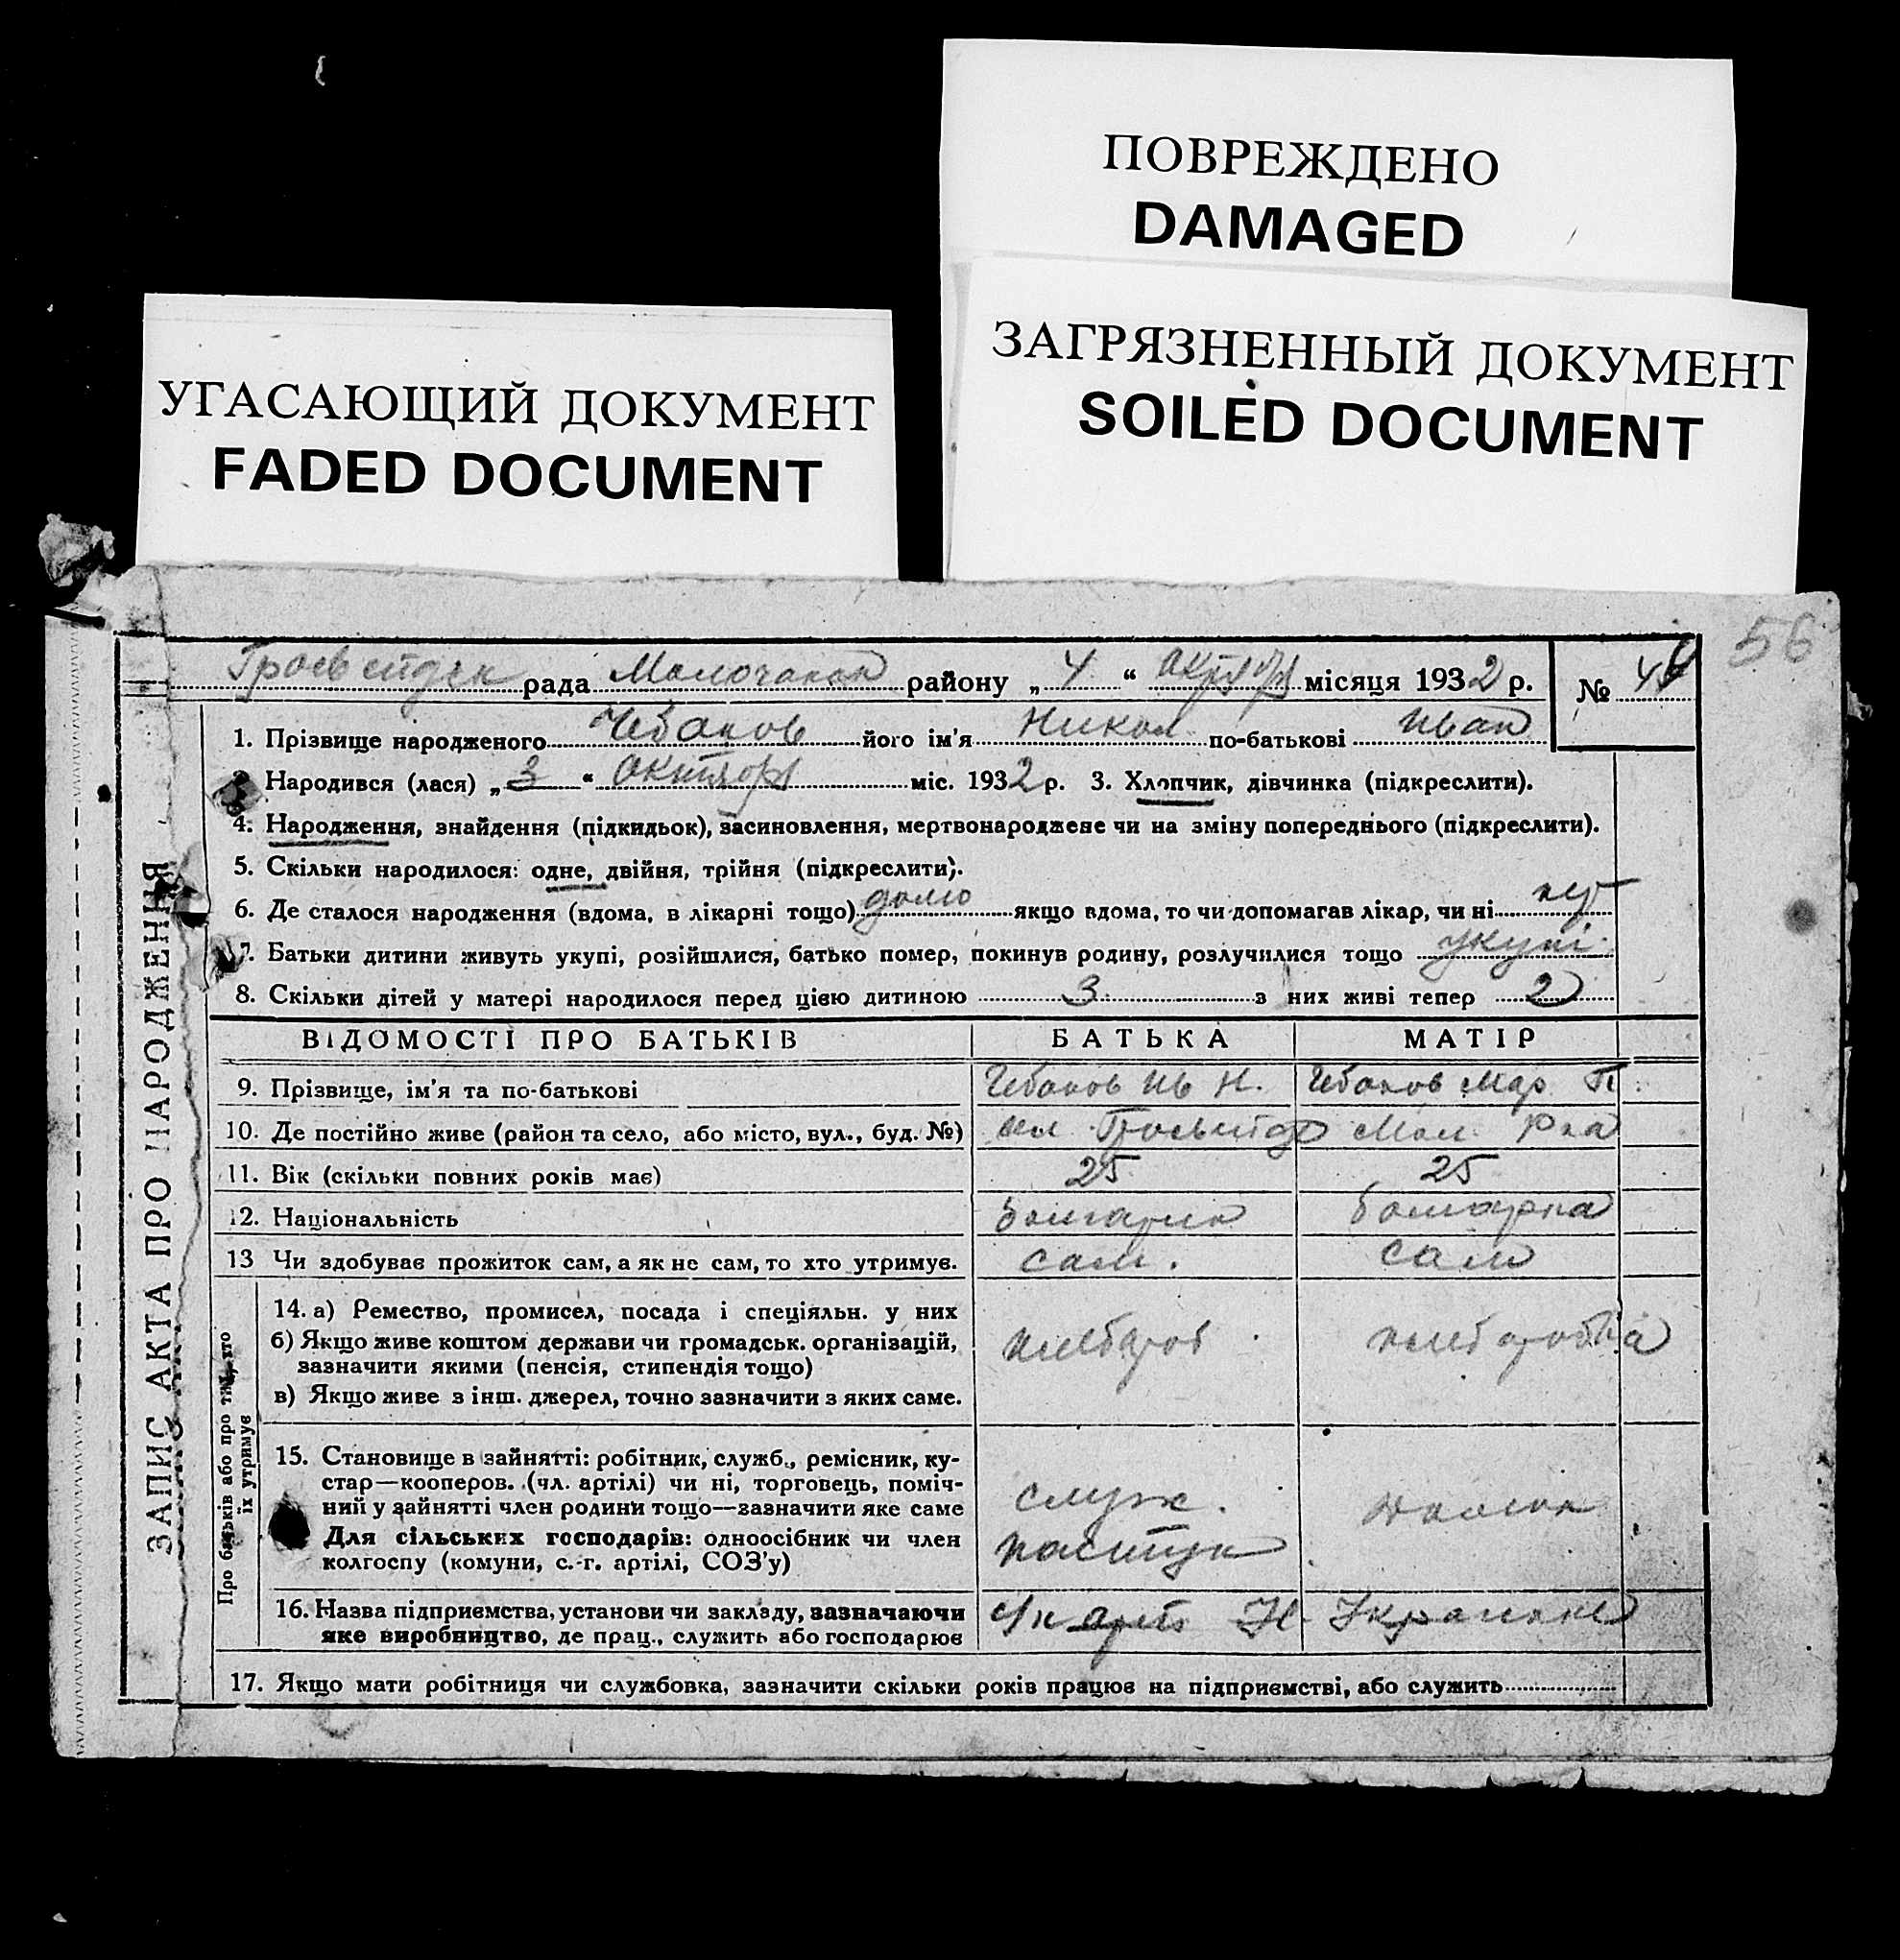 ПОВРЕЖДЕНО
DAMAGED
ЗАГРЯЗНЕННЫЙ ДОКУМЕНТ
SOILED DOCUMENT
УГАСАЮЩИЙ ДОКУМЕНТ
FADED DOCUMENT
56
ЗАПИС АКТА ПРО НАРОДЖЕННЯ
рада району „ 4 “ місяця 1932 р. №
1. Прізвище народженого Чебанов його ім'я Никол по-батькові Иван
Народився (лася) „ 3 “ Октябр міс. 1932 р. 3. Хлопчик, дівчинка (підкреслити).
4. Народження, знайдення (підкидьок), засиновлення, мертвонароджене чи на зміну попереднього (підкреслити).
5. Скільки народилося: одне, двійня, трійня (підкреслити).
6. Де сталося народження (вдома, в лікарні тощо) якщо вдома, то чи допомагав лікар, чи ні
7. Батьки дитини живуть укупі, розійшлися, батько помер, покинув родину, розлучилися тощо укупі
8. Скільки дітей у матері народилося перед цією дитиною 3 з них живі тепер 2
ВІДОМОСТІ ПРО БАТЬКІВ БАТЬКА МАТІР
9. Прізвище, ім'я та по-батькові Чебанов Ив Н. Чебанов Мар П
10. Де постійно живе (район та село, або місто, вул., буд. №) Мол
11. Вік (скільки повних років має) 25 25
12. Національність
13 Чи здобуває прожиток сам, а як не сам, то хто утримує. сам. сам
Про батьків або про тих, хто їх утримує
14. а) Ремество, промисел, посада і спеціяльн. у них
б) Якщо живе коштом держави чи громадськ. організацій,
зазначити якими (пенсія, стипендія тощо)
в) Якщо живе з інш. джерел, точно зазначити з яких саме.
15. Становище в зайнятті: робітник, служб., ремісник, ку-
стар—кооперов. (чл. артілі) чи ні, торговець, поміч-
ний у зайнятті член родини тощо—зазначити яке саме служ.
Для сільських господарів: одноосібник чи член
колгоспу (комуни, с.-г. артілі, СОЗ'у) пастух
16. Назва підприємства, установи чи закладу, зазначаючи
яке виробництво, де прац., служить або господарює
17. Якщо мати робітниця чи службовка, зазначити скільки років працює на підприємстві, або служить